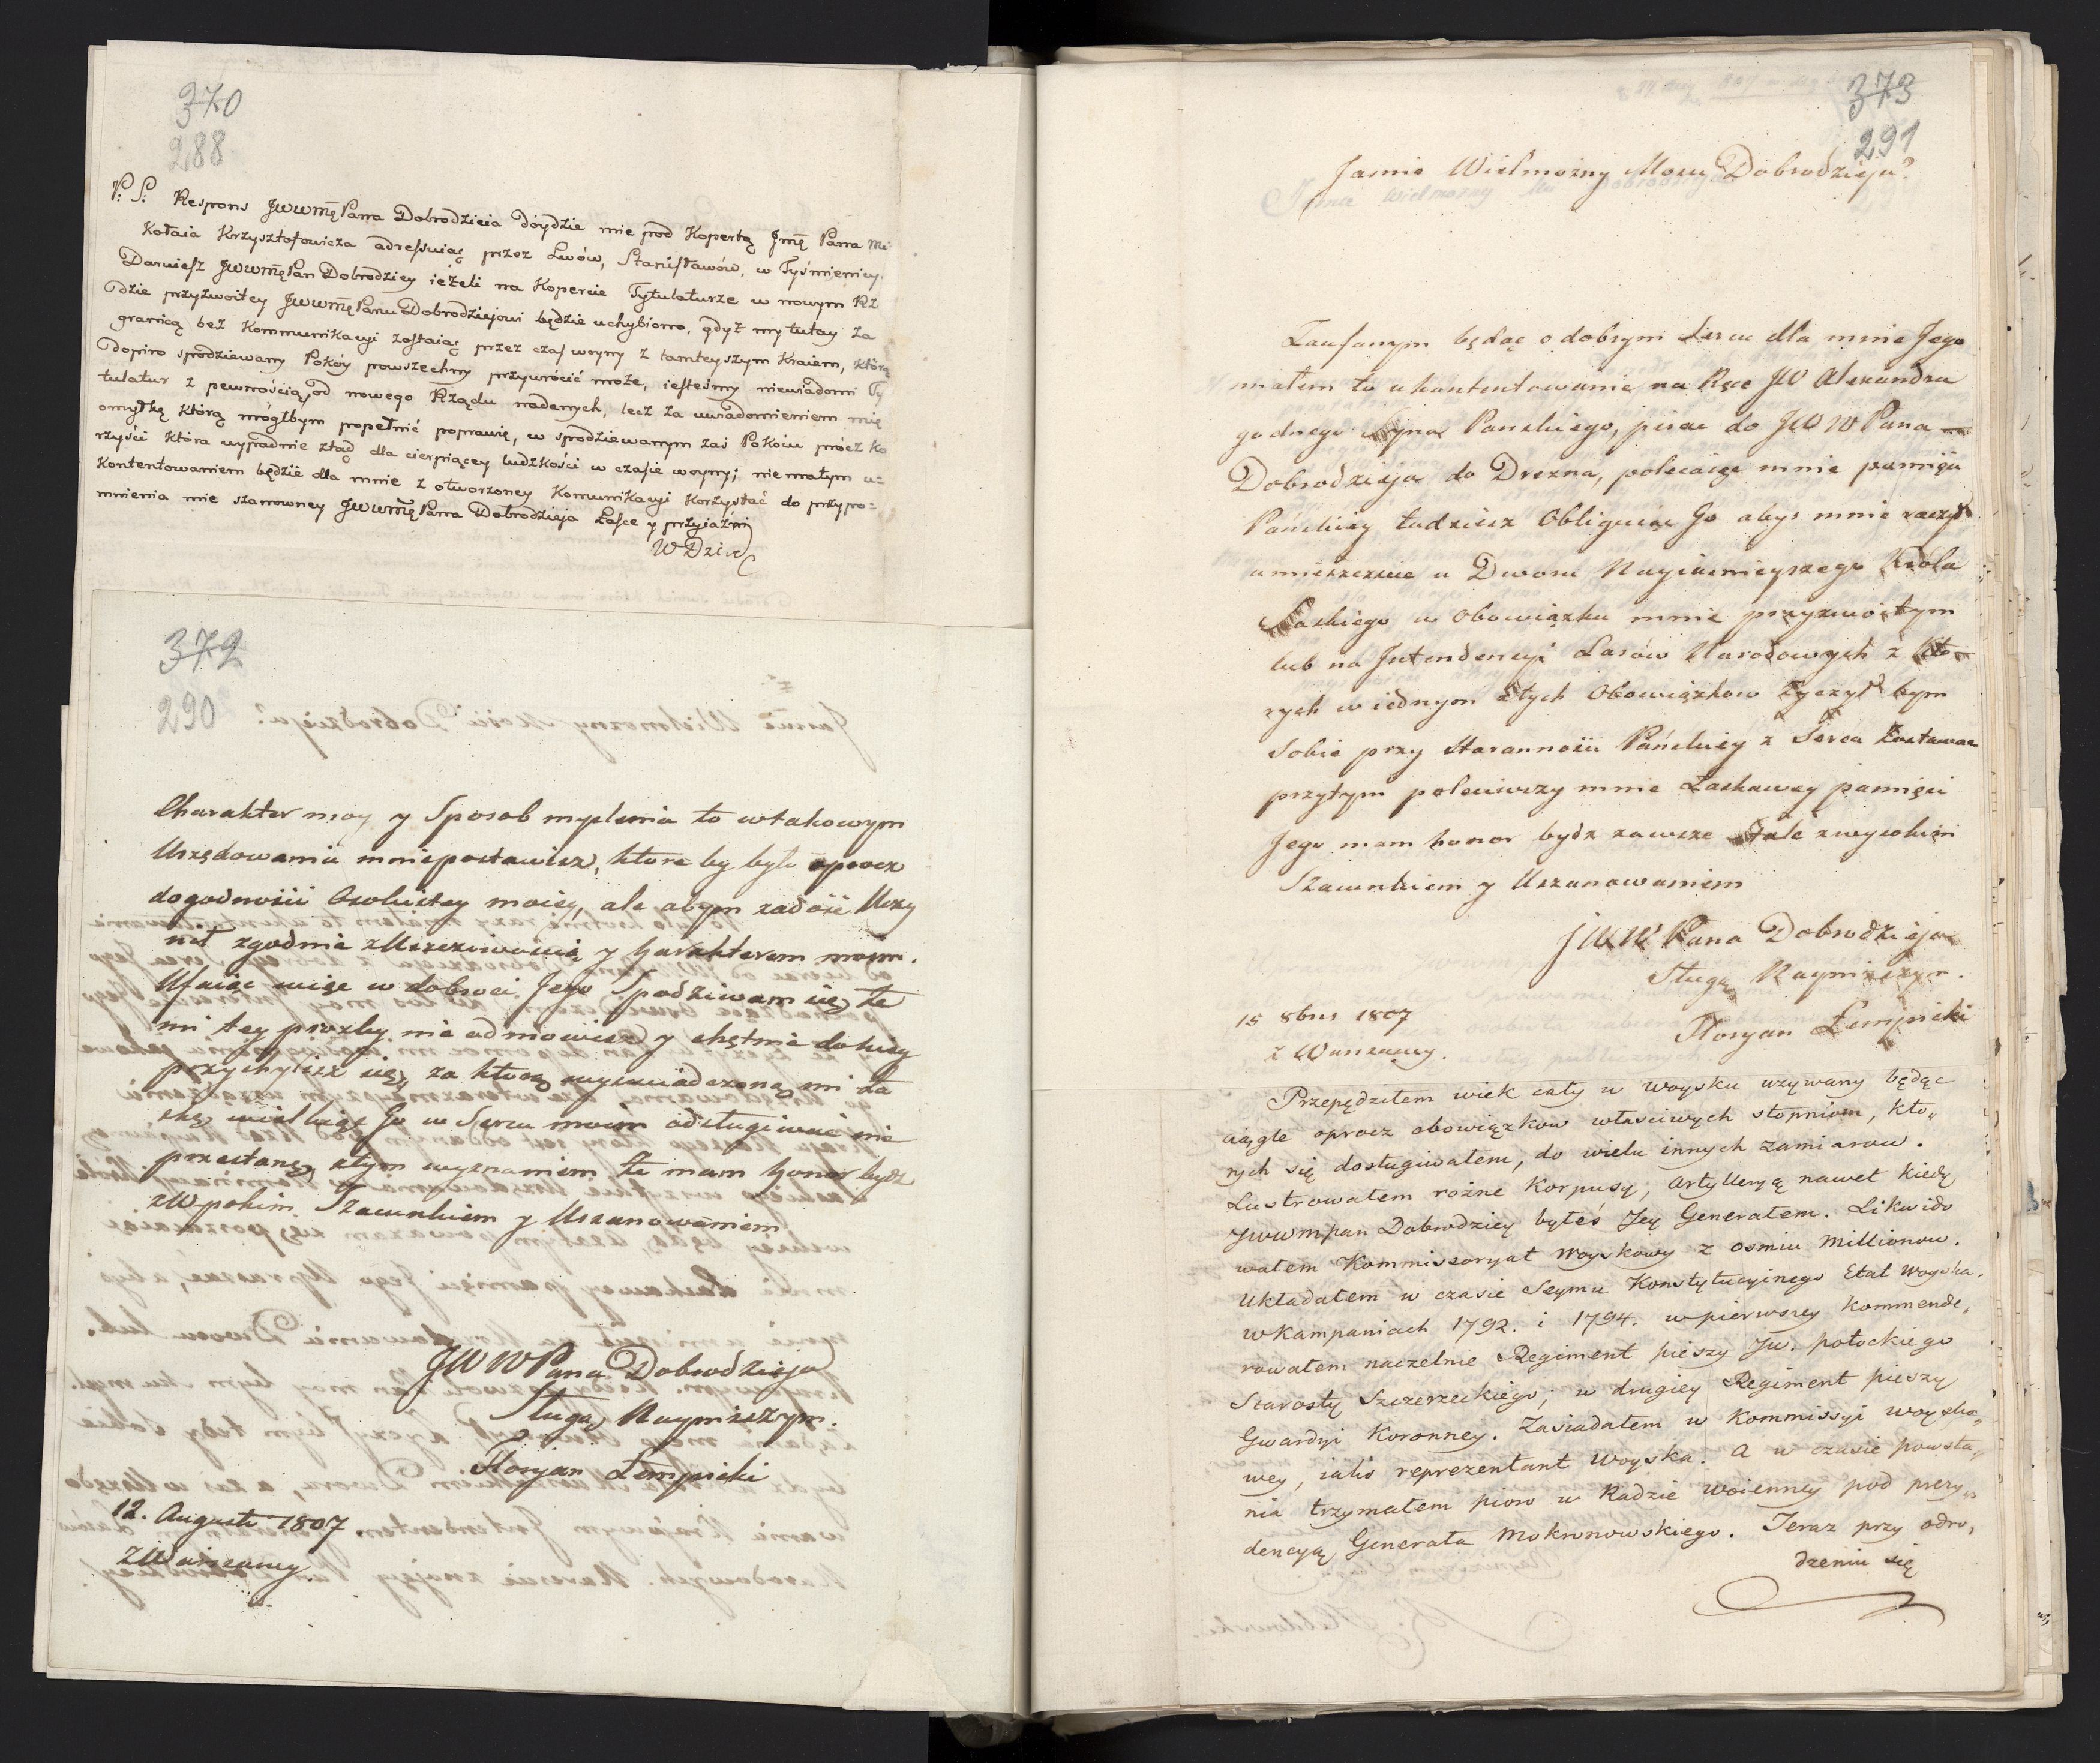 370
288
P: S: Respons JWWmę Pana Dobrodzieia dóydzie mie pod Kopertą Jmę Pana Mi
Kołaia Krzysztofowicza adressuiąc przez Lwów, Stanisławów, w Tyśmienicy.
Daruiesz JWWmę Pan Dobrodziey ieżeli na Kopercie Tytulaturze w nowym Rzą
dzie przyzwoitey JWWmę Panu Dobrodziejowi będzie uchybiono, gdyż my tutay za
granicą bez Kommunikacyi zostaiąc przez czas woyny z tamteyszym Kraiem, którą
dopiro spodziewany Pokóy powszechny przywrócić może, iesteśmy niewiadomi Ty
tulatur z pewnością od nowego Rządu nadanych, lecz za uwiadomieniem mię
omyłkę którą mógłbym popełnić poprawię, w spodziewanym zaś Pokoiu prócz ko
rzyści która wypadnie ztąd dla cierpiącey ludzkości w czasie woyny; niemałym u=
kontentowaniem będzie dla mnie z otworzoney Komunikacyi korzystać do przypo=
mnienia mie szanowney JWWmę Pana Dobrodzieja Łasce y przyiaźni
372
290
Charakter moy y Sposob myslenia to wtakowym
Urzędowaniu mnie postawisz, ktore by było oprocz
dogodności Osobistey moiey, ale abym zadość Uczy
nił zgodnie z Uczciwością y harakterem moim.
Ufaiąc więc w dobroci Jego Spodziwam się że
mi tey prozby nie odmowisz y chętnie do niey
przychylisz się, za ktorą wyswiadczoną mi ła
skę wielbiąc Go w Sercu moim odsługiwac nie
przestanę, ztym wyznaniem że mam honor bydz
z Wysokim Szacunkiem y Uszanowaniem
JWW Pana Dobrodzieja
Sługą Nayniższym.
Floryan Łempicki
12. Augusti 1807
z Warszawy.
373
291
Jasnie Wielmożny Mosci Dobrodzieju?
Zaufanym będąc o dobrym Sercu dla mnie Jego
miałem to ukontentowanie na Ręce JW Alexandra
godnego Syna Panskiego, pisac do JWW Pana
Dobrodzieja do Drezna, polecaiąc mnie pamięci
Pańskiey, tudziesz Obliguiąc Go abys mnie raczył
umieszczenie u Dworu Nayiasnieyszego Króla
Saskiego w Obowiązku mnie przyzwoitym
lub na Jntendencyi Lasów Narodowych z kto
rych wiednym ztych Obowiązkow życzył bym
Sobie przy Starannosci Pańskiey z Serca Zostawac
przytym poleciwszy mnie Łaskawey pamięci
Jego mam honor bydz zawsze Stale z wysokim
Szacunkiem y Uszanowaniem
JWW Pana Dobrodzieja
Sługą Nayniższym.
15 8bris 1807
z Warszawy.
Floryan Łempicki
Przepędziłem wiek cały w woysku uzywany będąc
ciągle oprocz obowiązkow właściwych stopniom, kto„
rych się dosługiwałem, do wielu innych zamiarow.
Lustrowałem rożne Korpusy, Artylleryą nawet kiedy
JWWmpan Dobrodziey byłeś Jey Generałem. Likwido
wałem Kommissoryat Woyskowy z osmiu Millionow.
Układałem w czasie Seymu Konstytucyinego Etat Woyska.
w Kampaniach 1792. i 1794. w pierwszey kommende„
rowałem naczelnie Regiment pieszy JW. Potockiego
Starosty Szczerzeckiego; w drugiey Regiment pieszy
Gwardyi Koronney. Zasiadałem w Kommissyi woysko„
wey, iako reprezentant Woyska. A w czasie powsta„
nia trzymałem pioro w Radzie woienney pod prezy„
dencyą Generała Mokronowskiego. Teraz przy odro„
dzeniu się